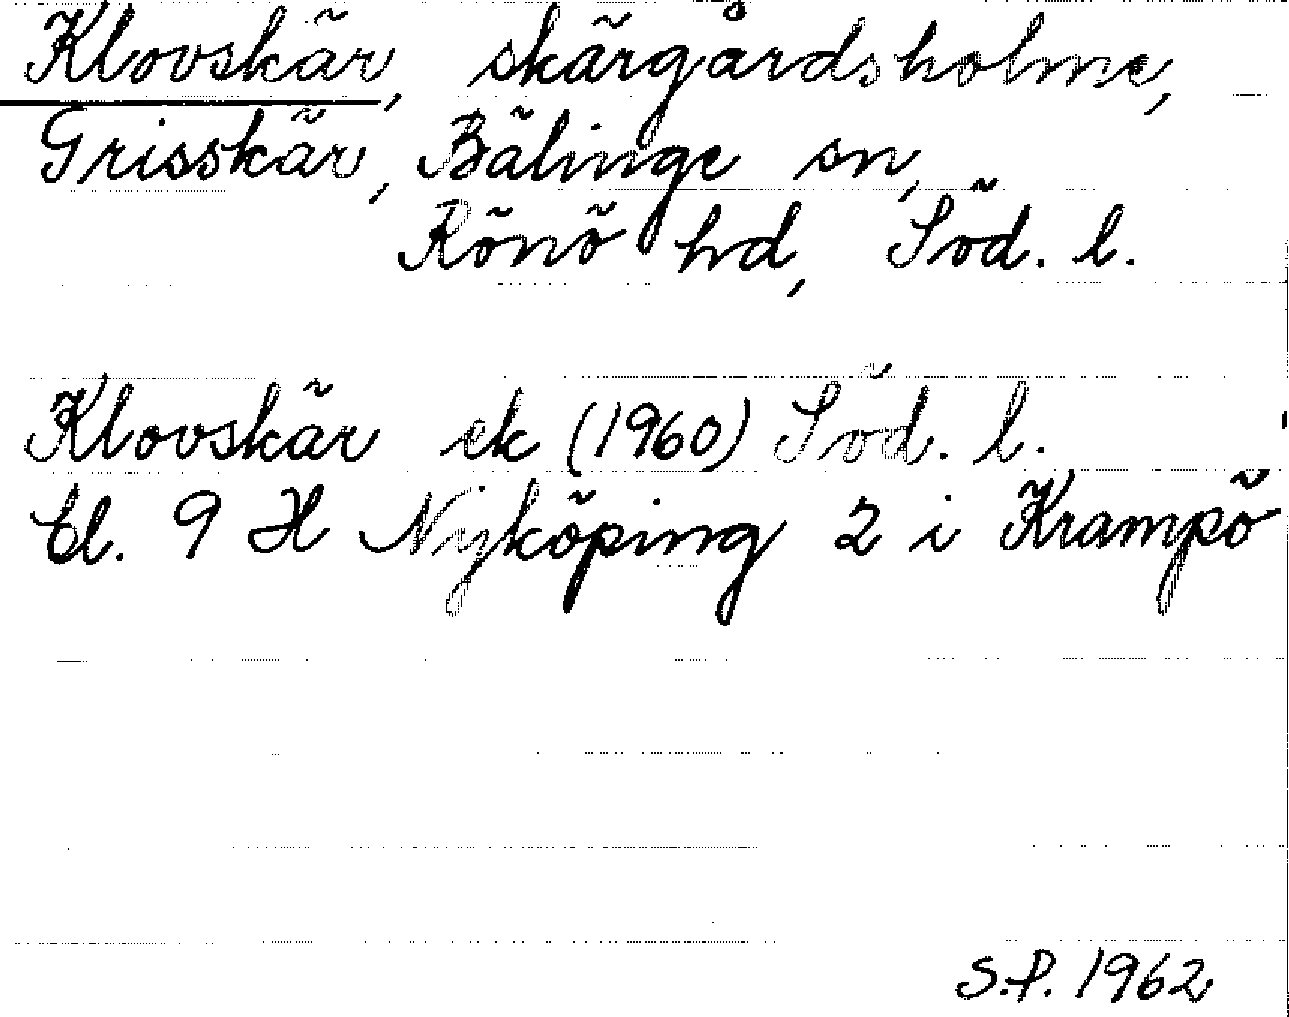 Klovskär, skärgårdsholme,
Grisskär, Bälinge sn,
Rönö hd, Söd. l.
Klovskär ek (1960) Söd. l.
Bl. 9 H Nyköping 2 i Krampö
S.P. 1962